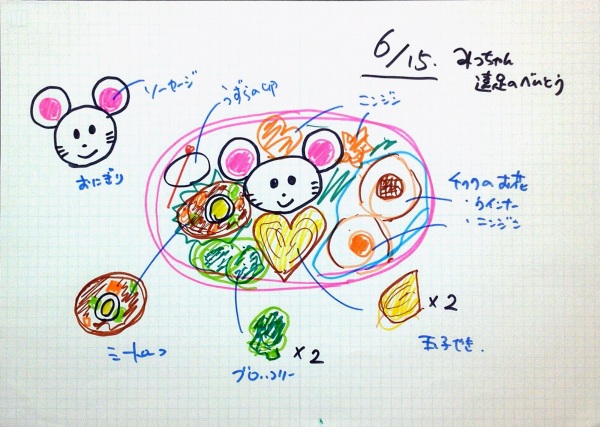 6/15. みっちゃん
遠足のべんとう
ソーセージ
うずらのゆで卵
ニンジン
おにぎり
チクワのお花
・ウインナー
・ニンジン
×2
玉子やき.
ミートローフ
×2
ブロッコリー